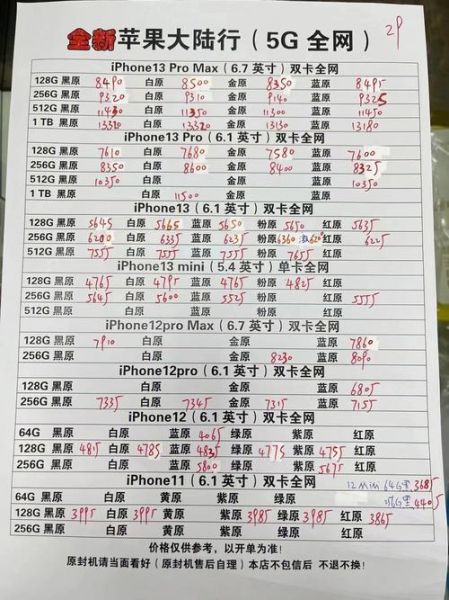 全新苹果大陆行（5G 全网） 29
iPhone13 Pro Max（6.7 英寸）双卡全网
128G 黑原 8490 白原 8500 金原 8350 蓝原 8495
256G 黑原 9320 白原 9310 金原 9140 蓝原 9325
512G 黑原 11430 白原 11350 金原 11300 蓝原 11450
1 TB 黑原 13320 白原 13320 金原 13130 蓝原 13180
iPhone13 Pro（6.1 英寸）双卡全网
128G 黑原 7610 白原 7680 金原 7580 蓝原 7600
256G 黑原 8350 白原 8600 金原 8400 蓝原 8325
512G 黑原 10350 白原 金原 蓝原 10350
1 TB 黑原 白原 11500 金原 蓝原
iPhone13（6.1 英寸）双卡全网
128G 黑原 5645 白原 5665 蓝原 5650 粉原 5650 红原 5635
256G 黑原 6200 白原 6335 蓝原 6235 粉原 6360 红原 6225
512G 黑原 7555 白原 7555 蓝原 7555 粉原 7655 红原
iPhone13 mini（5.4 英寸）单卡全网
128G 黑原 4765 白原 4795 蓝原 4765 粉原 4825 红原
256G 黑原 5645 白原 5600 蓝原 5525 粉原 红原 5555
512G 黑原 白原 蓝原 粉原 红原
iPhone12pro Max（6.7 英寸）双卡全网
128G 黑原 7910 白原 金原 蓝原 7860
256G 黑原 白原 金原 8230 蓝原 8090
iPhone12pro（6.1 英寸）双卡全网
128G 黑原 白原 金原 蓝原 6805
256G 黑原 7335 白原 7345 金原 7315 蓝原 7155
iPhone12（6.1 英寸）双卡全网
64G 黑原 白原 蓝原 4065 绿原 紫原 红原
128G 黑原 4815 白原 4785 蓝原 4835 绿原 4775 紫原 4755 红原
256G 黑原 白原 蓝原 5800 绿原 紫原 5675 红原
iPhone11（6.1 英寸）双卡全网 12 mini 64G黑 3685
64G 黑原 白原 黄原 紫原 绿原 红原 4405
128G 黑原 3995 白原 3995 黄原 紫原 3985 绿原 3985 红原 3865
256G 黑原 白原 黄原 紫原 绿原 红原
价格仅供参考，以开单为准！
原封机请当面看好（原封机售后自理）本店不包信后 不退不换！